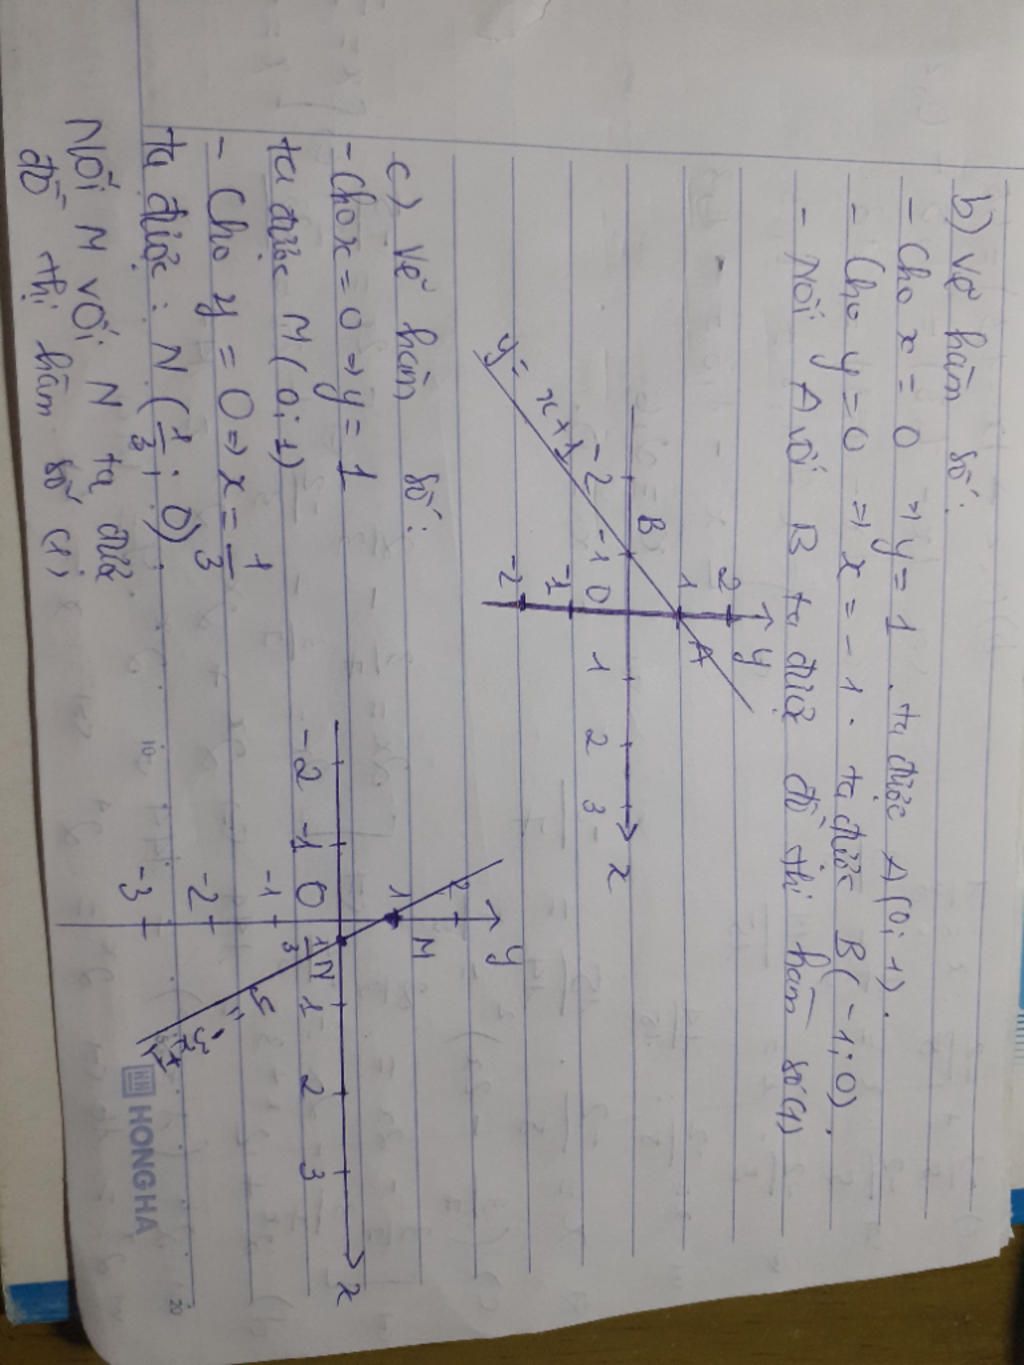 b) Vẽ hàm số:
- Cho x = 0 => y = 1. ta được A(0; 1).
- Cho y = 0 => x = -1. ta được B(-1; 0).
- Nối A với B ta được đồ thị hàm số (1)
y
2
1
A
B
-2 -1 0 1 2 3 x
-1
-2
y = x + 1
c) Vẽ hàm số:
- Cho x = 0 => y = 1
ta được M(0; 1)
- Cho y = 0 => x = 1/3
ta được: N(1/3; 0)
Nối M với N ta được
đồ thị hàm số (1)
y
2
1
M
-2 -1 0 1/3 N 1 2 3 x
-1
-2
-3
HH HONG HA
10
20